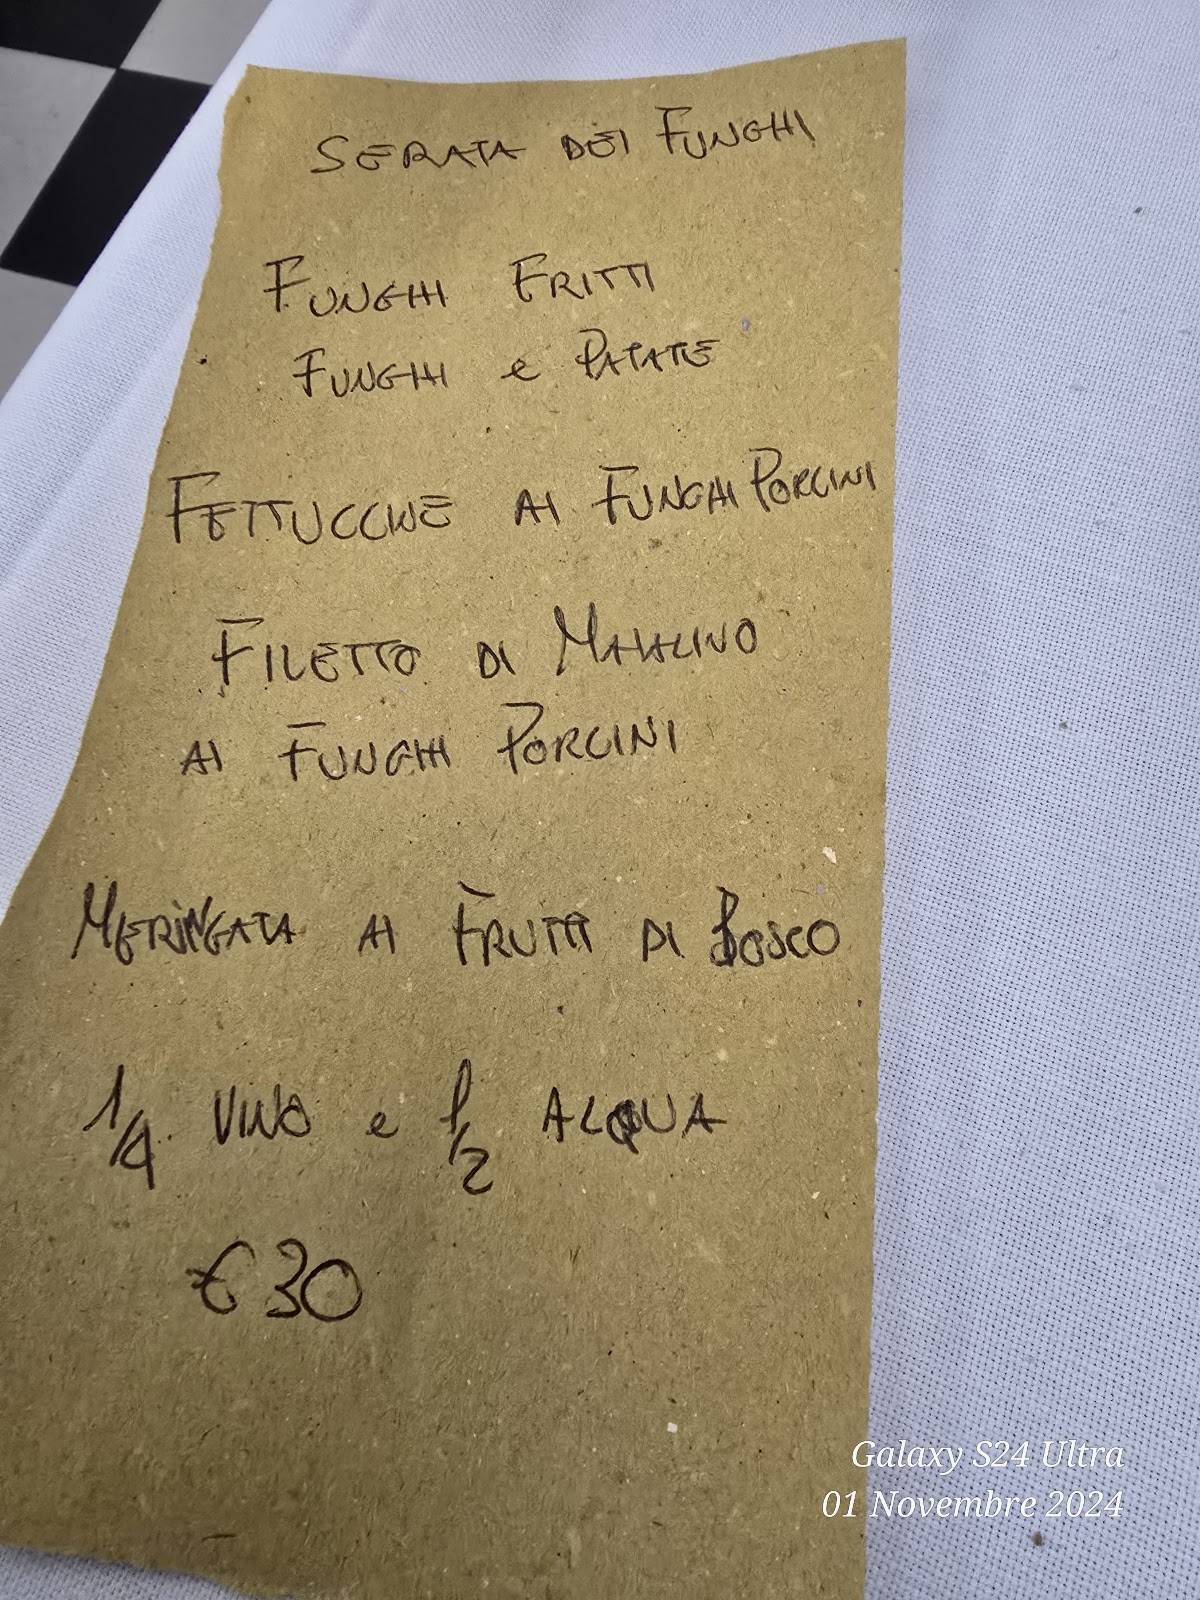 SERATA DEI FUNGHI
FUNGHI FRITTI
FUNGHI e PATATE
FETTUCCINE AI FUNGHI PORCINI
FILETTO DI MAIALINO
AI FUNGHI PORCINI
MERINGATA AI FRUTTI DI BOSCO
1/4 VINO e 1/2 ACQUA
€30
Galaxy S24 Ultra
01 Novembre 2024